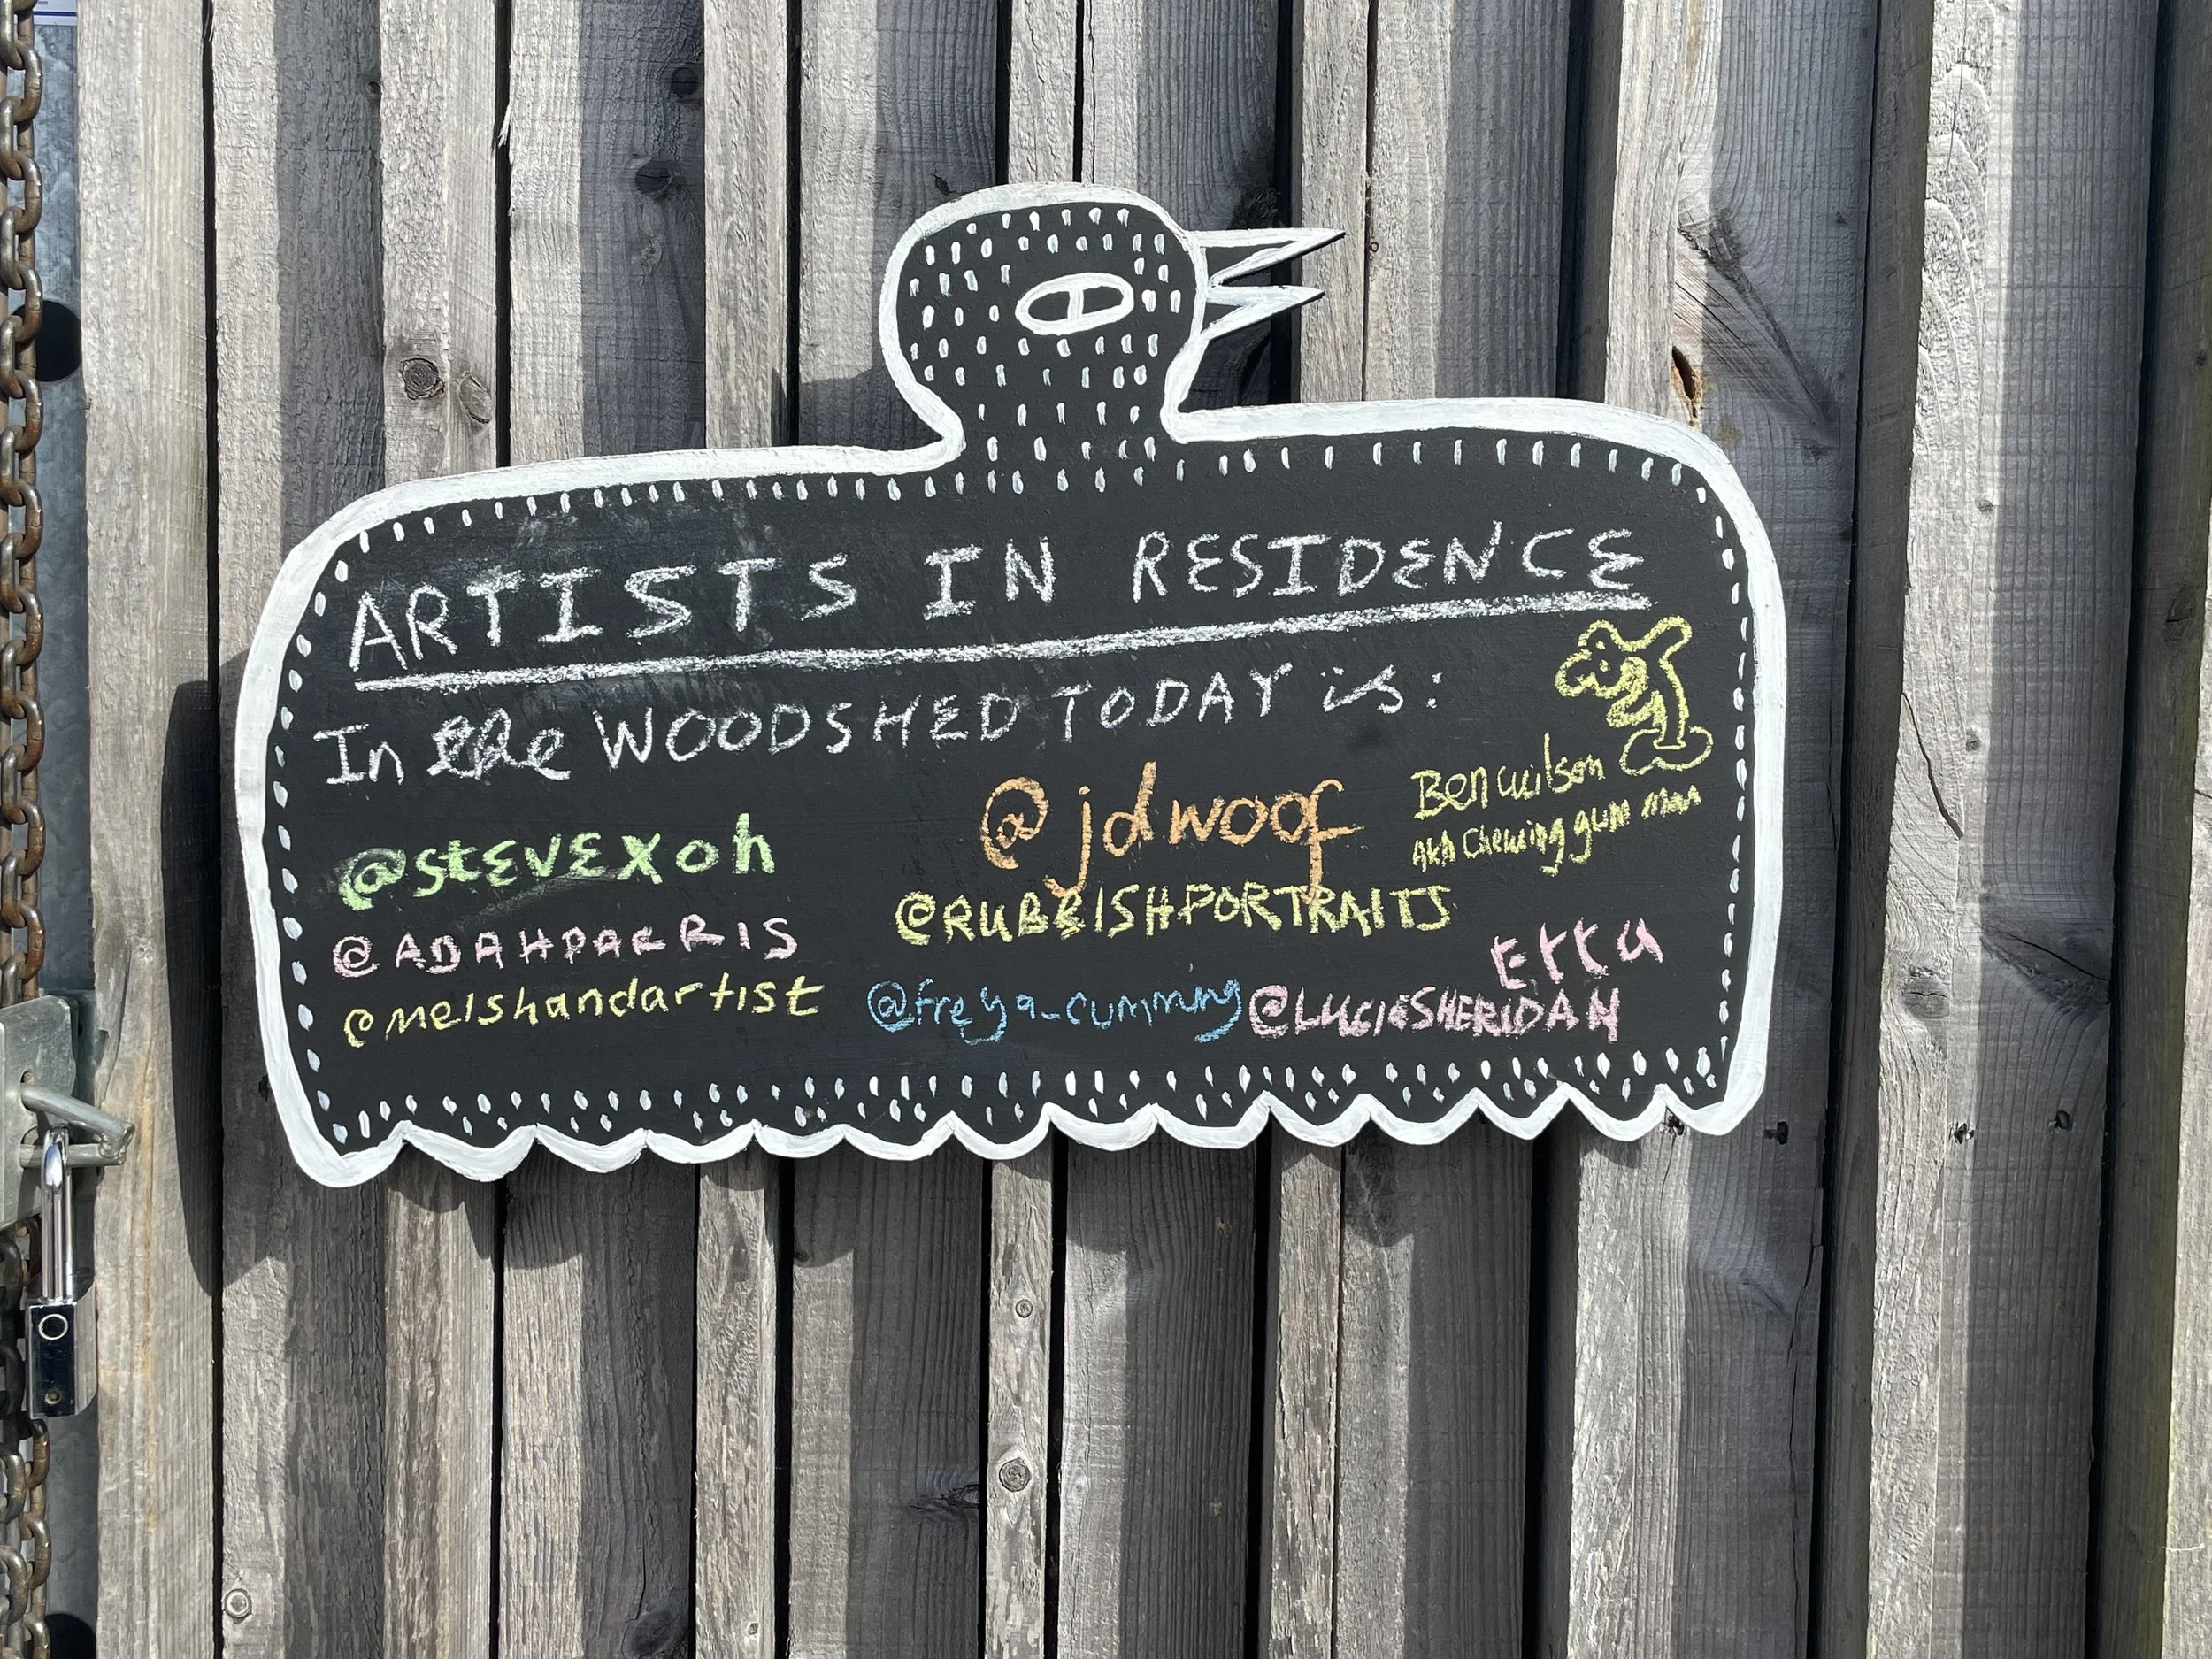 ARTISTS IN RESIDENCE
In the WOODSHED TODAY is:
@stEVEXoh
@jdwoof
Ben wilson
AKA Chewing gum man
@ADAHPARRIS
@RUBBISHPORTRAITS
Etta
@melshandartist
@freya_cumming
@LUCIESHERIDAN